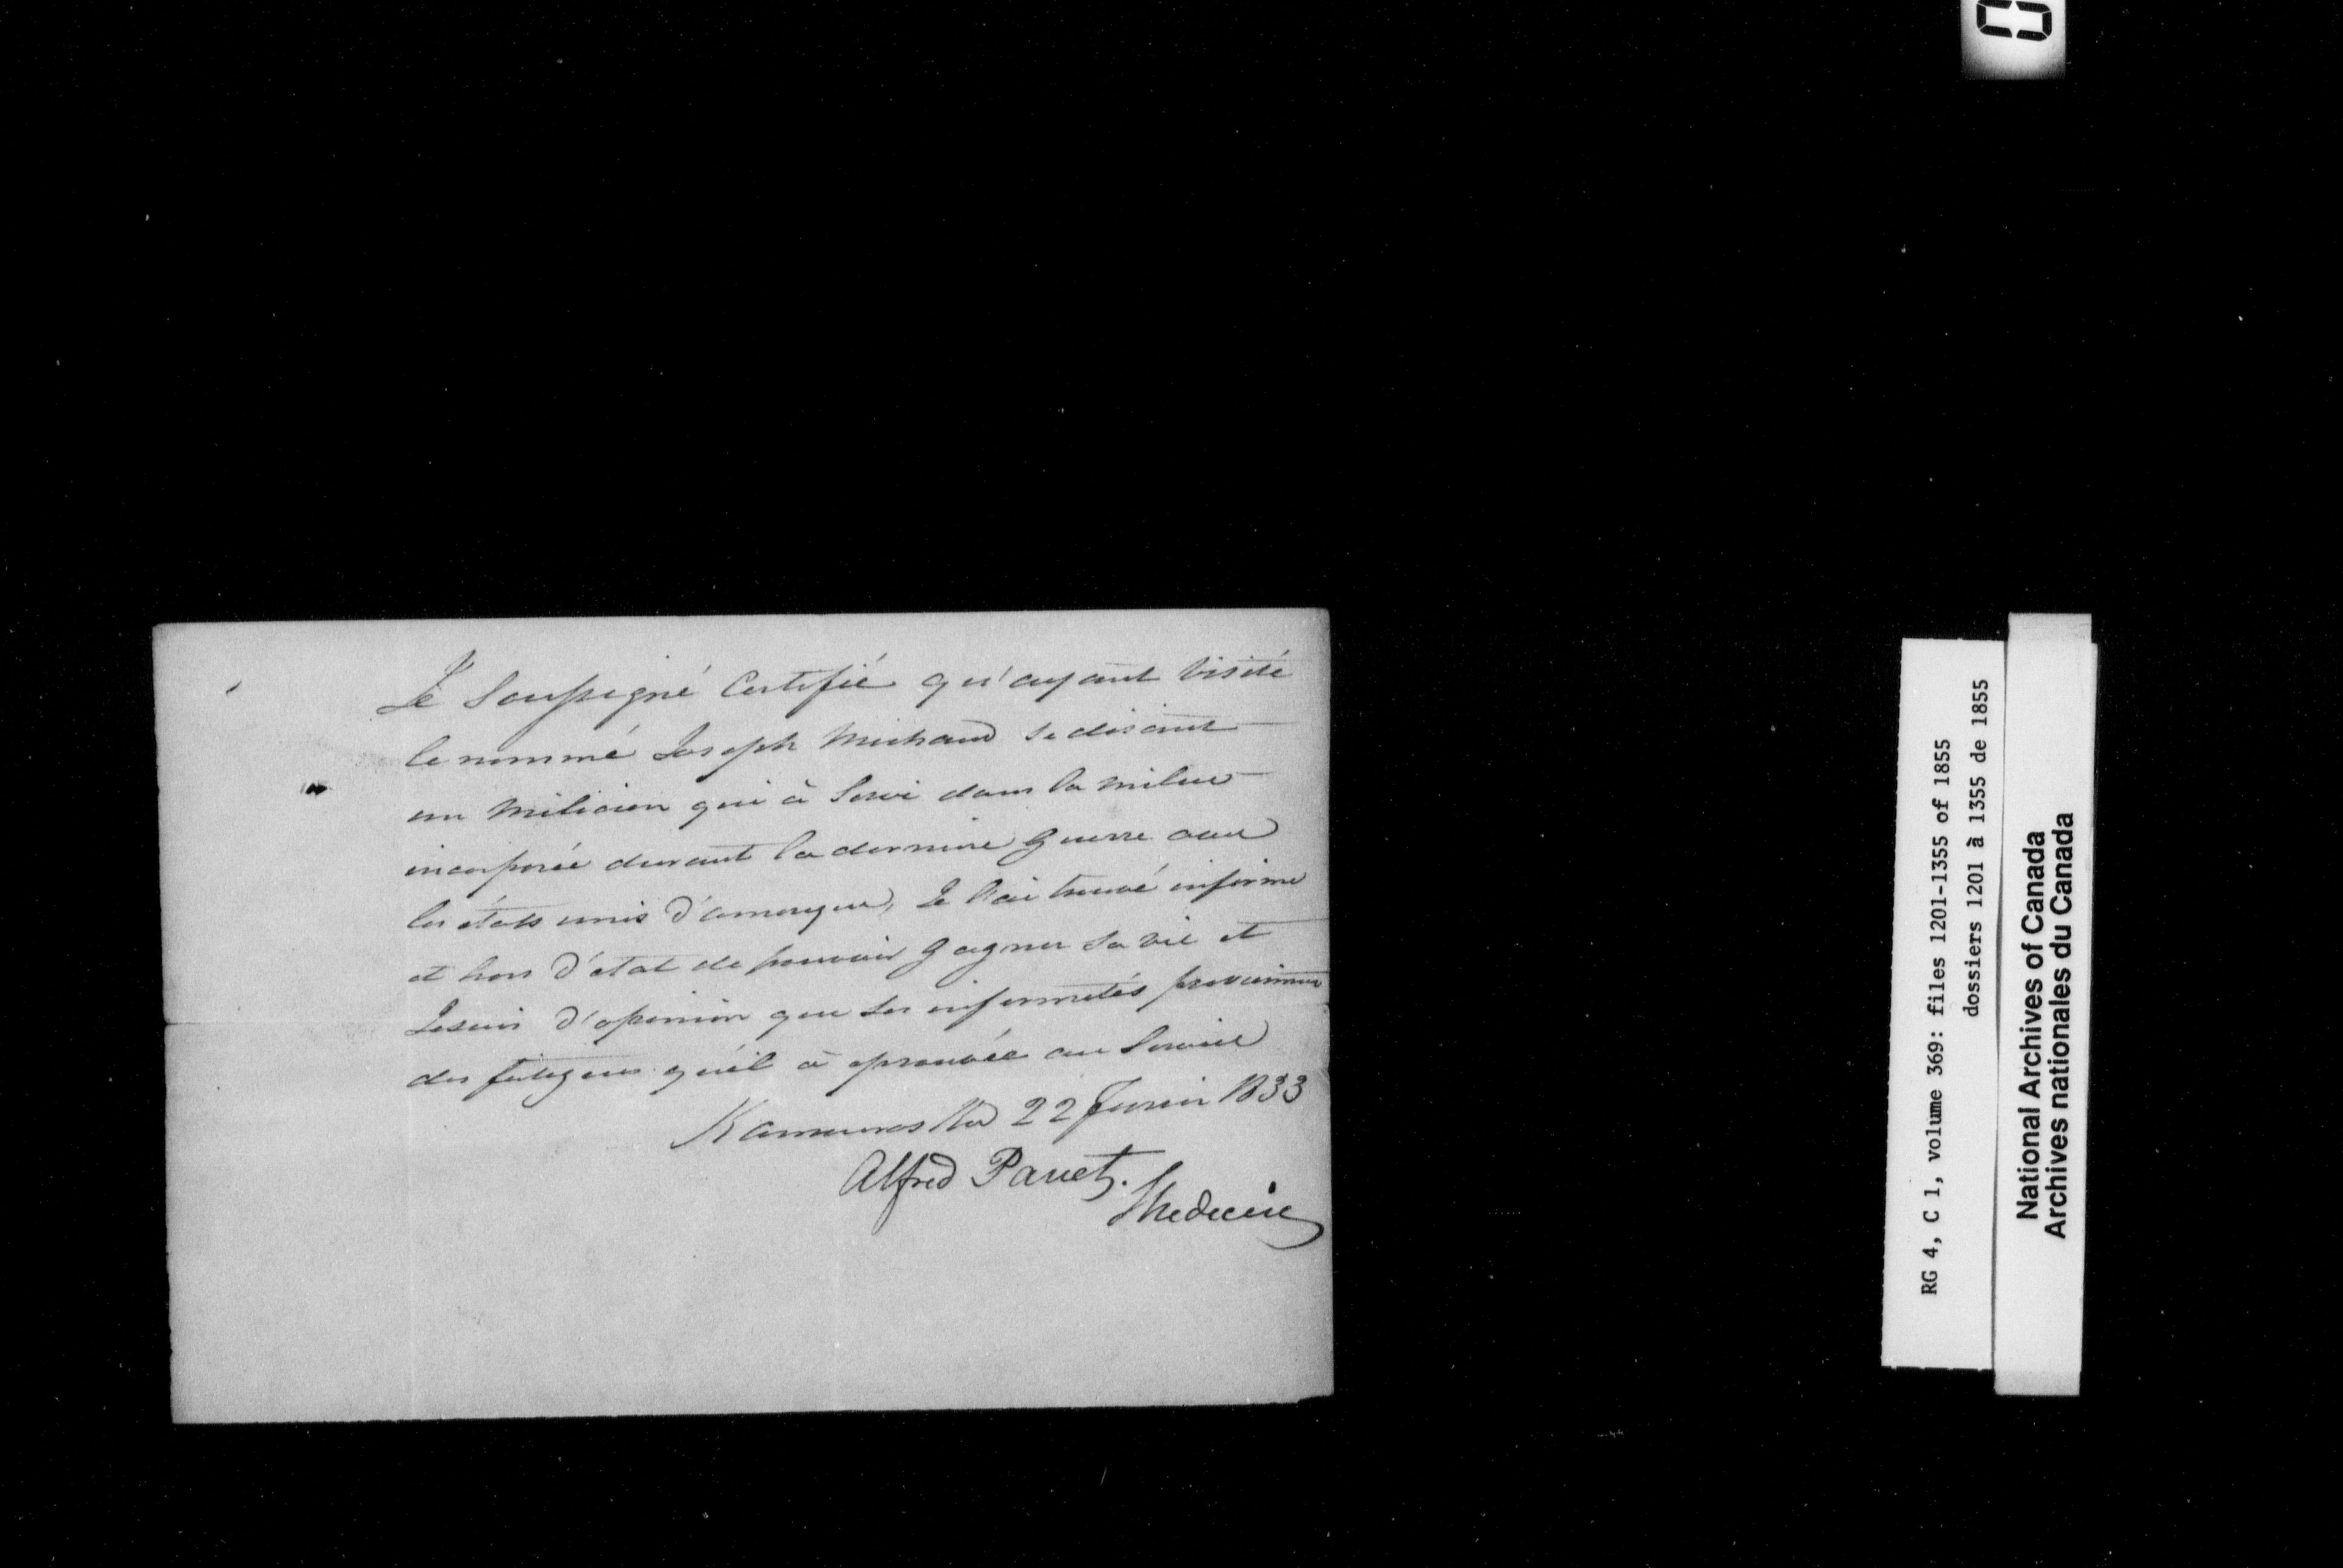 Je Soussigné Certifié qu'ayant visité
le nommé Joseph Michaud se disant
un Milicien qui à Servi dans la milice
incorporée durant la derniere Guerre avec
les états unis d'amerique, Je l'ai trouvé infirme
et hors d'état de pouvoir gagner sa vie et
Jesuis d'opinion que ses infirmités proviennent
des fatigues qu'il a eprouvée au Service
Kamouraska 22 Fevrier 1833
Alfred Panet.
Medecin
RG 4, C 1, volume 369: files 1201-1355 of 1855
dossiers 1201 à 1355 de 1855
National Archives of Canada
Archives nationales du Canada